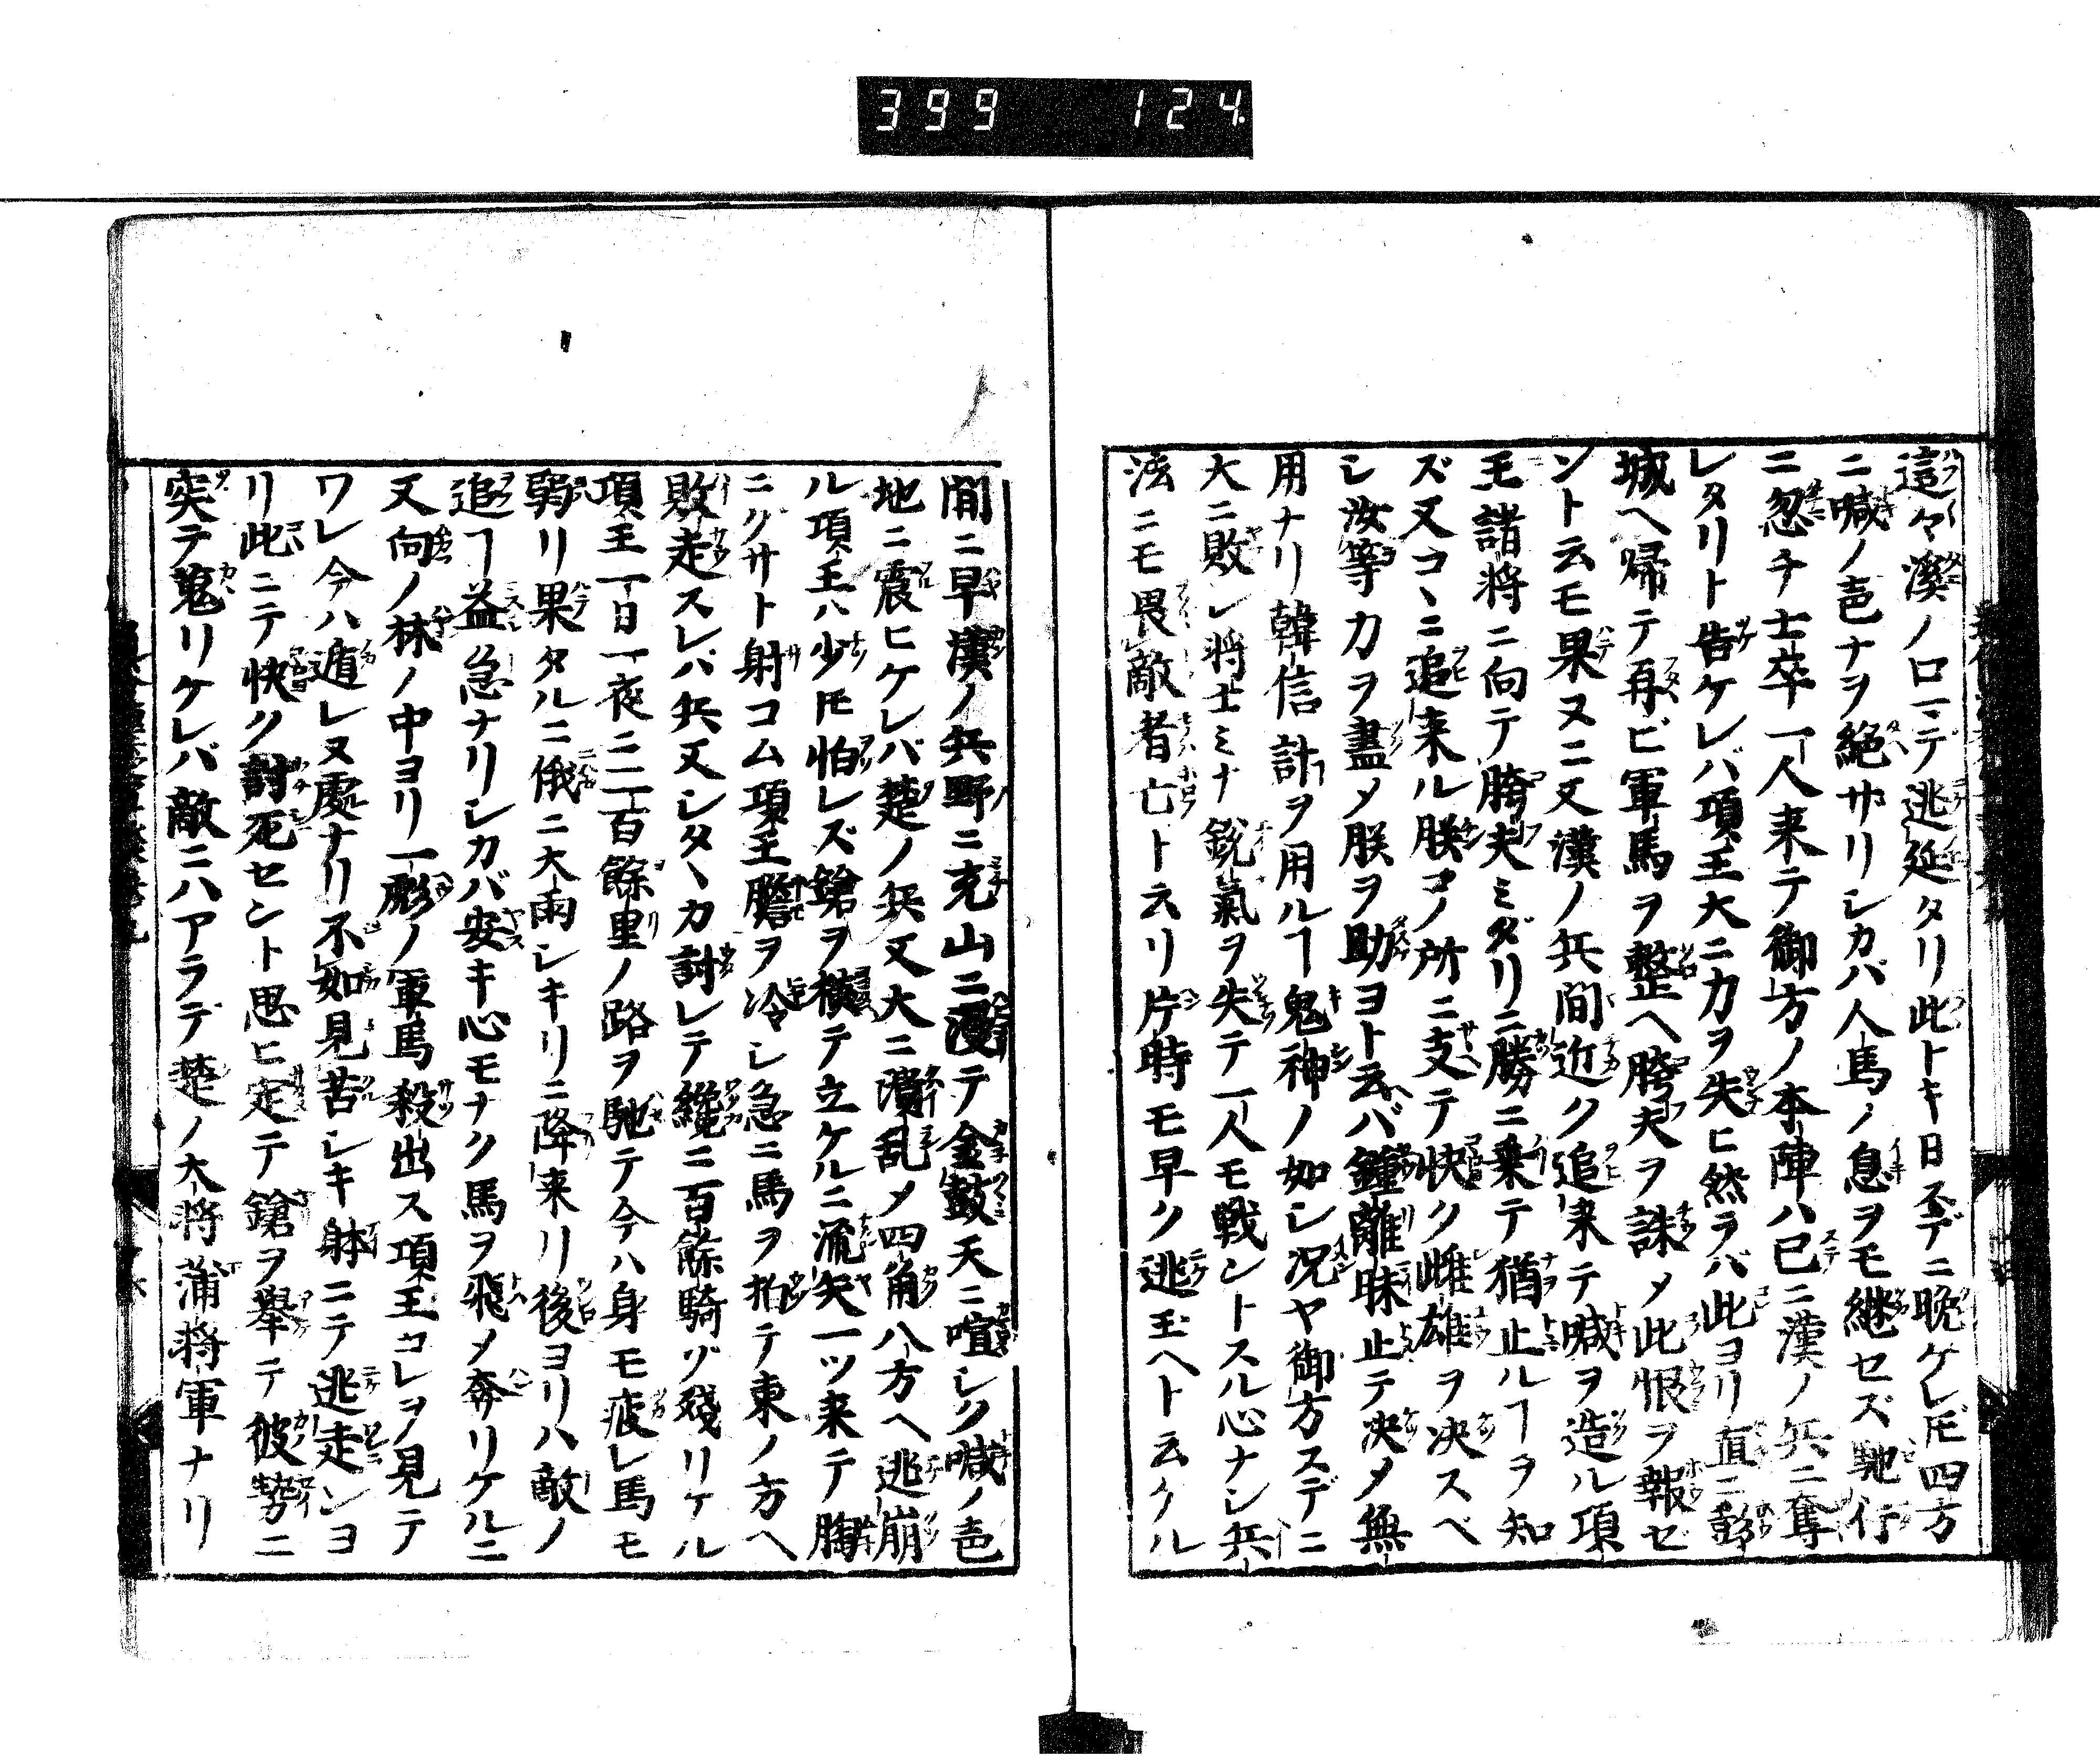 399 124
這々溪ノ口ニテ逃延タリ此トキ日スデニ晩ケレ𪜈四方
ニ喊ノ声ナヲ絶サリシカバ人馬ノ息ヲモ継セズ馳行
ニ忽チ士卒一人来テ御方ノ本陣ハ已ニ漢ノ兵ニ奪
レタリト告ケレバ項王大ニ力ヲ失ヒ然ラバ此ヨリ直ニ彭
城ヘ帰テ再ビ軍馬ヲ整ヘ胯夫ヲ誅メ此恨ヲ報ゼ
ント云モ果ヌニ又漢ノ兵間近ク追来テ喊ヲ造ル項
王諸将ニ向テ胯夫ミダリニ勝ニ乗テ猶止ルヿヲ知
ズ又コヽニ追来ル朕コノ所ニ支テ快ク雌雄ヲ决スベ
シ汝等力ヲ盡メ朕ヲ助ヨト云ヘバ鍾離昧止テ决メ無
用ナリ韓信計ヲ用ルヿ鬼神ノ如シ况ヤ御方スデニ
大ニ敗レ将士ミナ鋭氣ヲ失テ一人モ戦ントスル心ナシ兵
法ニモ畏敵者亡ト云リ片時モ早ク逃玉ヘト云ケル
間ニ早漢ノ兵野ニ充山ニ漫テ金鼓天ニ喧シク喊ノ声
地ニ震ヒケレバ楚ノ兵又大ニ潰乱メ四角八方ヘ逃崩
ル項王ハ少𪜈怕レズ鎗ヲ横テ立ケルニ流矢一ツ来テ胸
ニグサト射コム項王膽ヲ冷シ急ニ馬ヲ拍テ東ノ方ヘ
敗走スレバ兵又シタヽカ討レテ纔ニ二百餘騎ゾ残リケル
項王一日一夜ニ二百餘里ノ路ヲ馳テ今ハ身モ疲レ馬モ
弱リ果タルニ俄ニ大雨シキリニ降来リ後ヨリハ敵ノ
追ヿ益急ナリシカバ安キ心モナク馬ヲ飛メ奔リケルニ
又向ノ林ノ中ヨリ一彪ノ軍馬殺出ス項王コレヲ見テ
ワレ今ハ遁レヌ處ナリ不如見苦シキ躰ニテ逃走ンヨ
リ此ニテ快ク討死セント思ヒ定テ鎗ヲ挙テ彼勢ニ
突テ蒐リケレバ敵ニハアラデ楚ノ大将蒲将軍ナリ